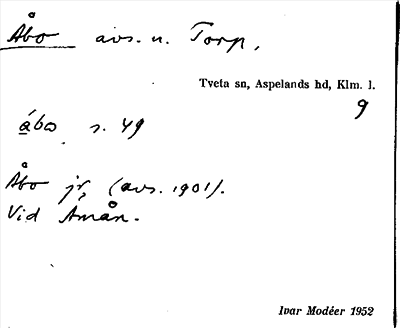 Åbo avs. u. Torp,
Tveta sn, Aspelands hd, Klm. l.
9
åbo s. 49
Åbo jr, (avs. 1901).
Vid Åmån.
Ivar Modéer 1952